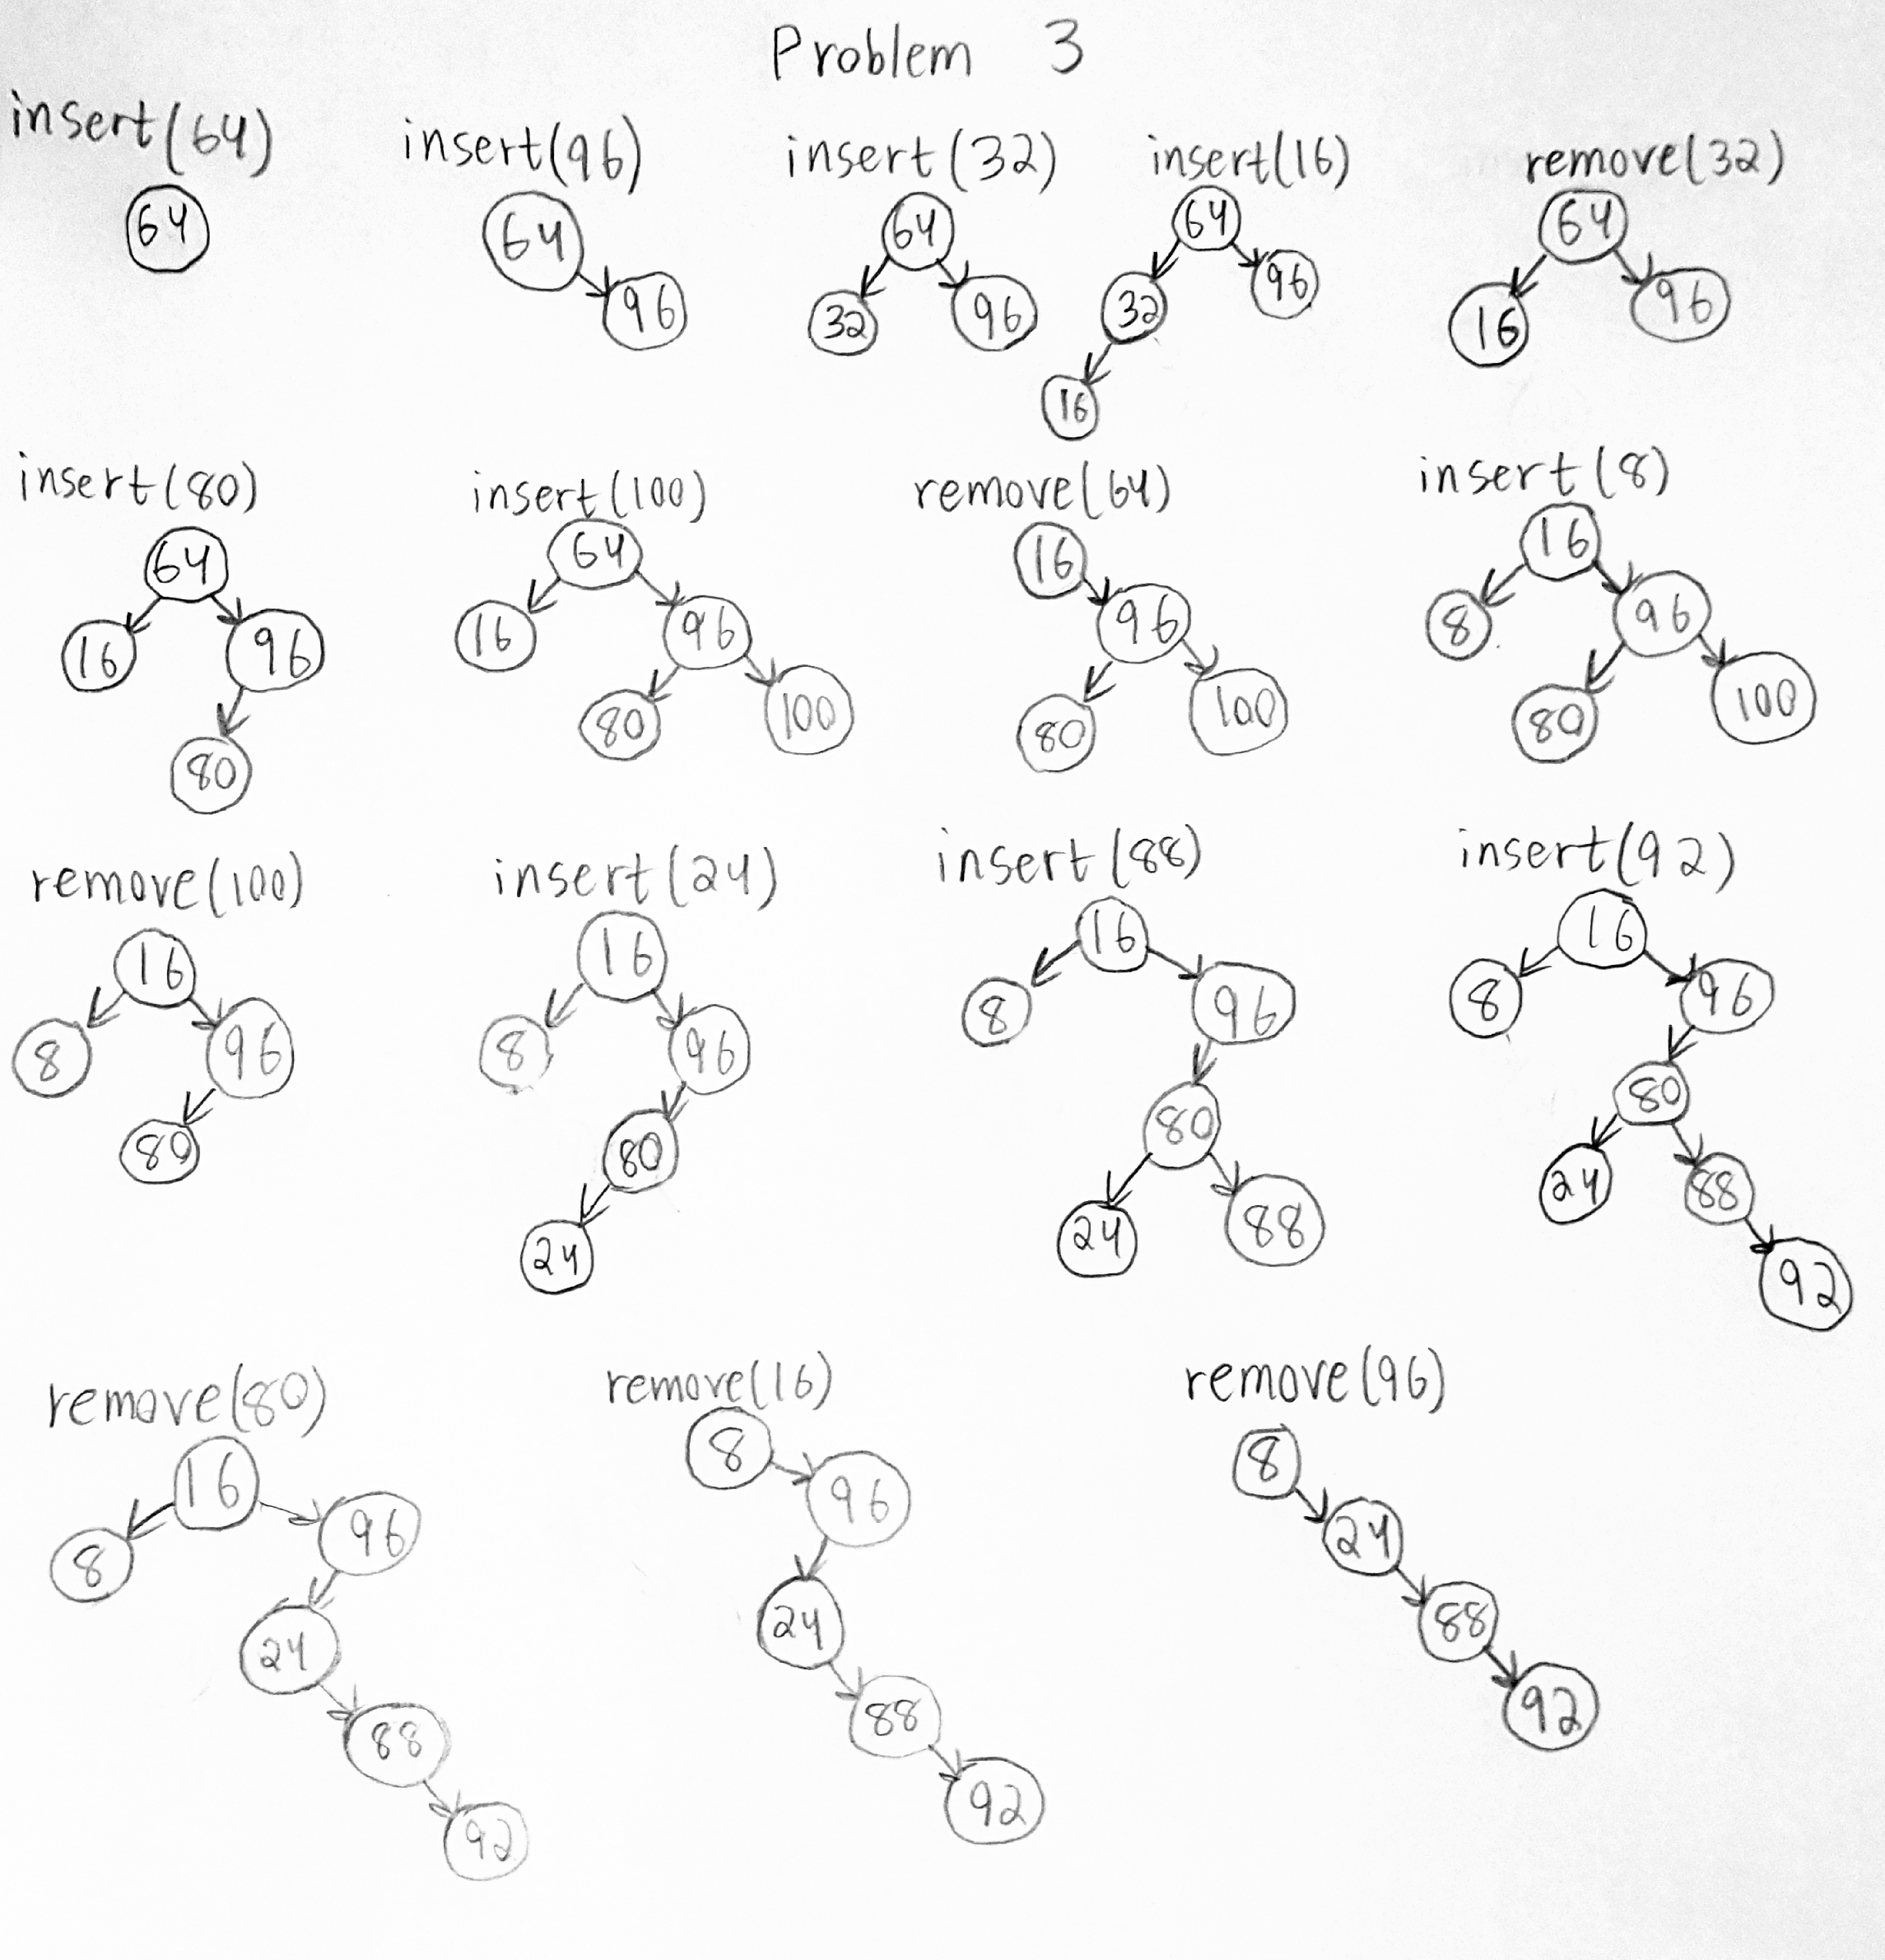 Problem 3
insert(64)
64
insert(96)
64
96
insert(32)
64
32 96
insert(16)
64
32 96
16
remove(32)
64
16 96
insert(80)
64
16 96
80
insert(100)
64
16 96
80 100
remove(64)
16
96
80 100
insert(8)
16
8 96
80 100
remove(100)
16
8 96
80
insert(24)
16
8 96
80
24
insert(88)
16
8 96
80
24 88
insert(92)
16
8 96
80
24 88
92
remove(80)
16
8 96
24
88
92
remove(16)
8
96
24
88
92
remove(96)
8
24
88
92